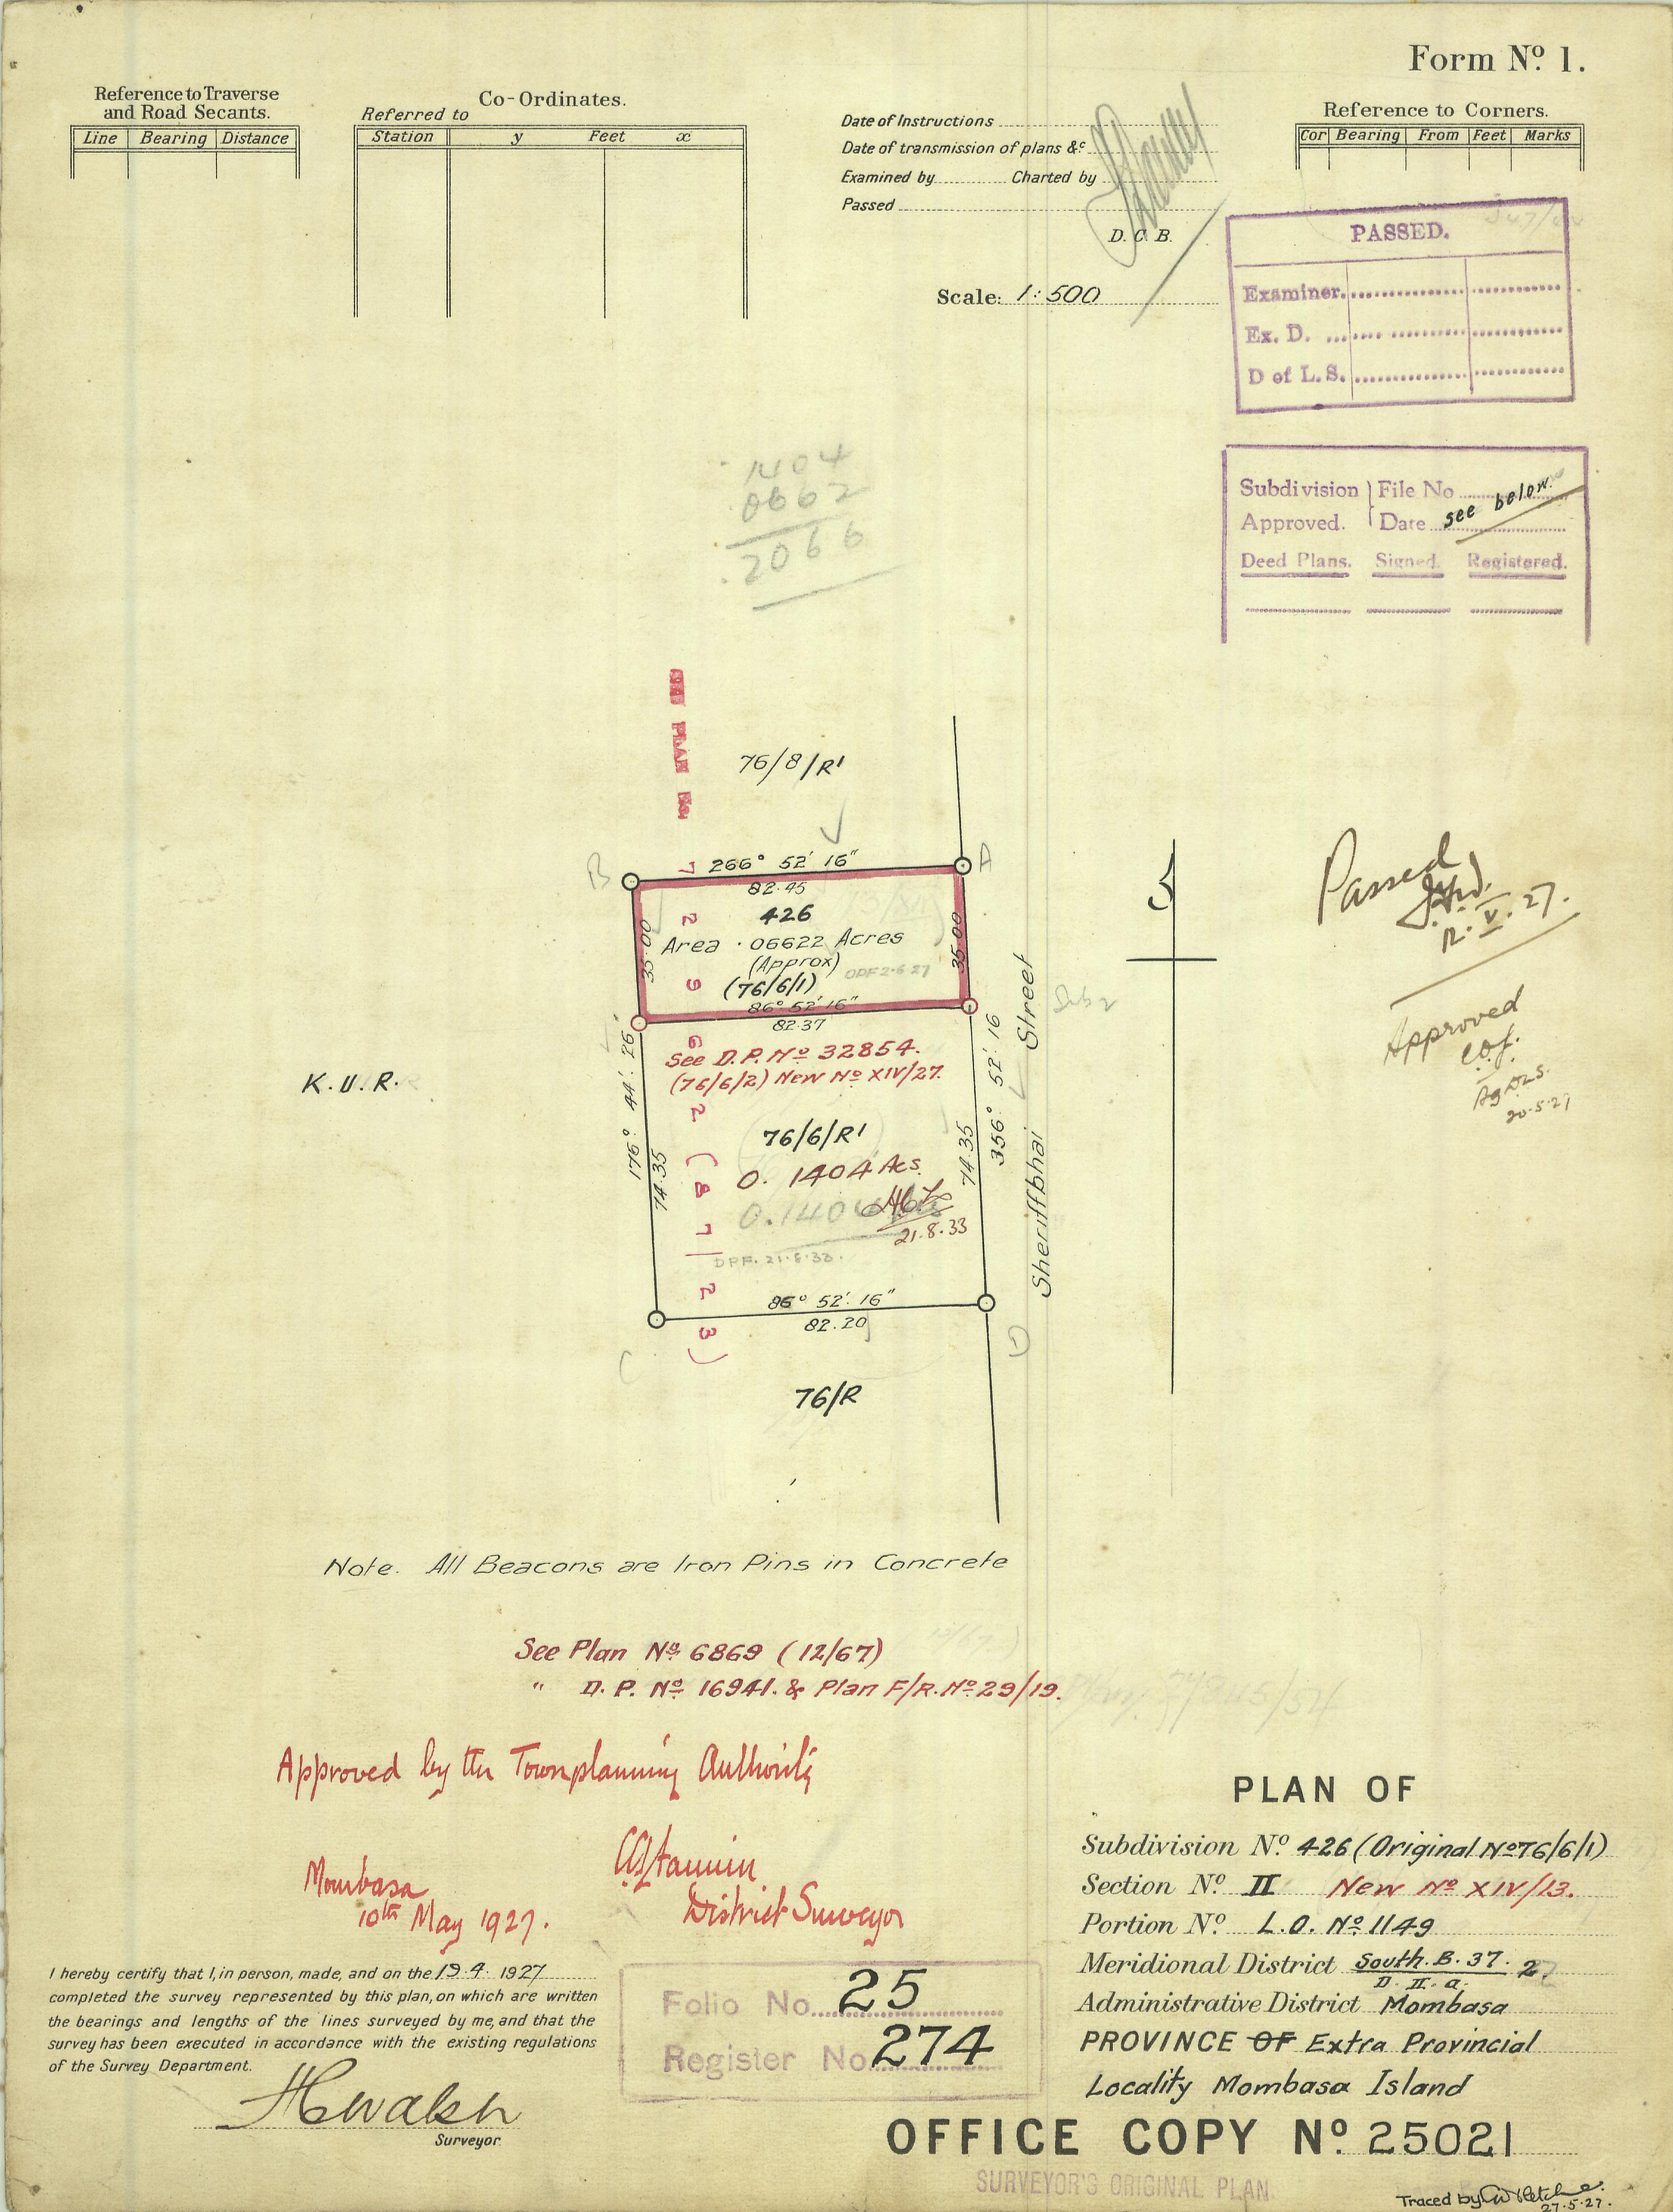 Form Nº 1.
Reference to Traverse
and Road Secants.
Line Bearing Distance
Co-Ordinates.
Referred to
Station y Feet x
Date of Instructions
Date of transmission of plans &c
Examined by Charted by
Passed
D. C. B.
Scale: 1:500
Reference to Corners.
Cor Bearing From Feet Marks
PASSED.
Examiner.
Ex. D.
D of L.S.
Subdivision Approved. File No
Date see below.
Deed Plans. Signed. Registered.
1404
0662
2066
SEE PLAN No. 72962 (87/23)
76/8/R1
B
A
266° 52' 16"
82.45
426
35.00
35.00
Area .06622 Acres
(Approx)
DPF 2.6.27
(76/6/1)
86° 52' 16"
82.37
See D.P. Nº 32854.
(76/6/2) New Nº XIV/27.
K.U.R.
176° 44' 26"
74.35
76/6/R1
0. 1404 Acs.
21.8.33
DPF. 21.8.33.
74.35
356° 52' 16
Sheriffbhai Street
86° 52'. 16"
82.20
C
D
76/R
Passed
12.V.27.
Approved
Ag DLS.
20.5.27
Note. All Beacons are Iron Pins in Concrete
See Plan Nº 6869 (12/67)
" D. P. Nº 16941. & Plan F/R. Nº 29/19.
Approved by the Townplanning Authority
Mombasa
10th May 1927.
District Surveyor
I hereby certify that I, in person, made, and on the 19.4.1927
completed the survey represented by this plan, on which are written
the bearings and lengths of the lines surveyed by me, and that the
survey has been executed in accordance with the existing regulations
of the Survey Department.
HCWalsh
Surveyor
Folio No. 25
Register No. 274
PLAN OF
Subdivision Nº 426 (Original Nº 76/6/1)
Section Nº II New Nº XIV/13.
Portion Nº L.O. Nº 1149
Meridional District South. B. 37. 2.
D. II. a.
Administrative District Mombasa
PROVINCE OF Extra Provincial
Locality Mombasa Island
OFFICE COPY Nº 25021
SURVEYOR'S ORIGINAL PLAN
Traced by
27.5.27.